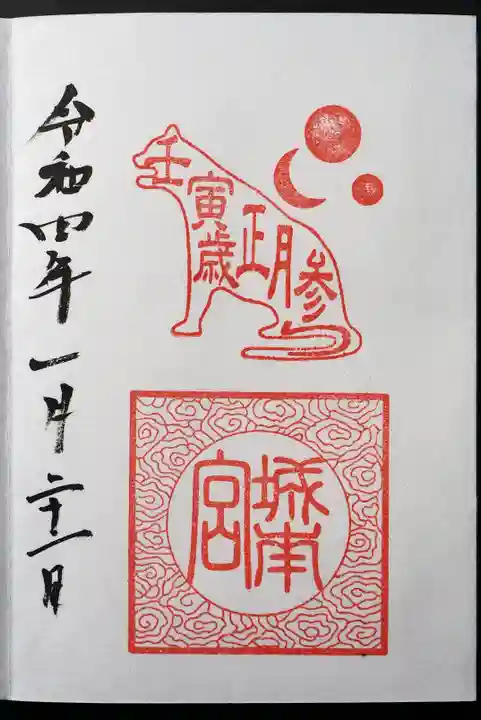 壬寅歳正月参
城南宮
令和四年一月二十一日